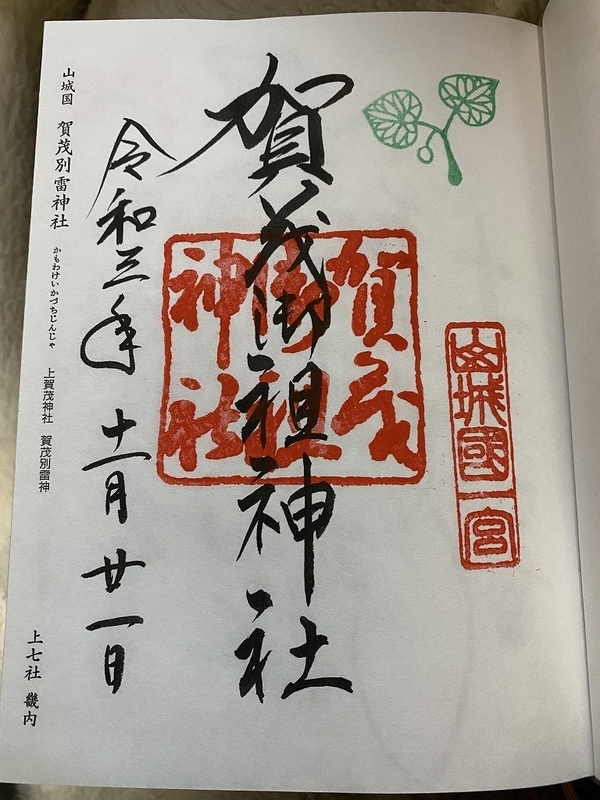 山城國一宮
賀茂
御祖
神社
賀茂御祖神社
令和三年 十一月 廿一日
山城国 賀茂別雷神社 かもわけいかづちじんじゃ 上賀茂神社 賀茂別雷神 上七社 畿内